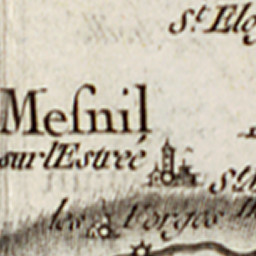 St. Elo
Meſnil
sur l'Estreé
St.
les Forges